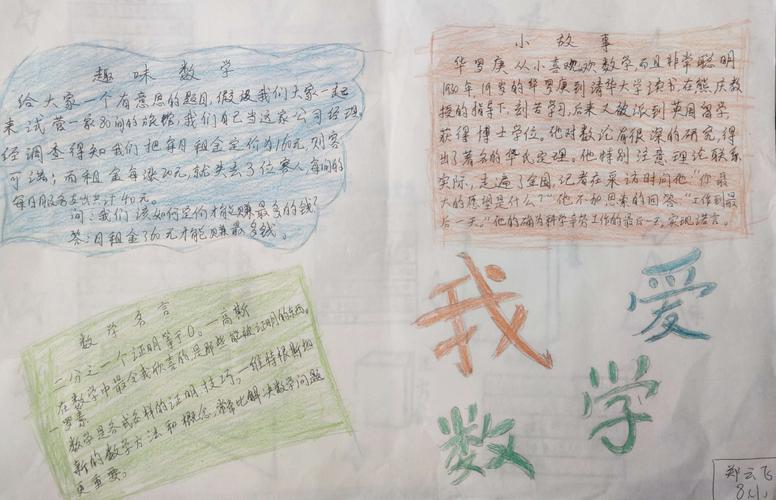 趣味数学
给大家一个有意思的题目,假设我们大家一起
来试营一家80间的旅馆,我们自己当这家公司经理,
经调查得知我们把每日租金定价为160元,则客
可满;而租金每涨20元,就失去3位客人,每间的
每日服务支出共计40元。
问:我们该如何定价才能赚最多的钱?
答:日租金360元才能赚最多钱。
小故事
华罗庚从小喜欢数学而且非常聪明
1930年19岁的华罗庚到清华大学读书在熊庆
授的指导下,刻苦学习,后来又被派到英国留学
获得博士学位。他对数论有很深的研究,得
出了著名的华氏定理。他特别注意理论联系
实际,走遍了全国,记者在采访时问他“你最
大的愿望是什么?”他不加思索的回答“工作到最
后一天。”他的确为科学辛劳工作的最后一天,实现诺言。
数学名言
二分之一个证明等于0。—高斯
在数学中最令我欣喜的,是那些能被证明的东西。
—罗素
数学是各式各样的证明技巧,—维特根斯坦
新的数学方法和概念,常常比解决数学问题
更重要。
我爱
数学
郑云飞